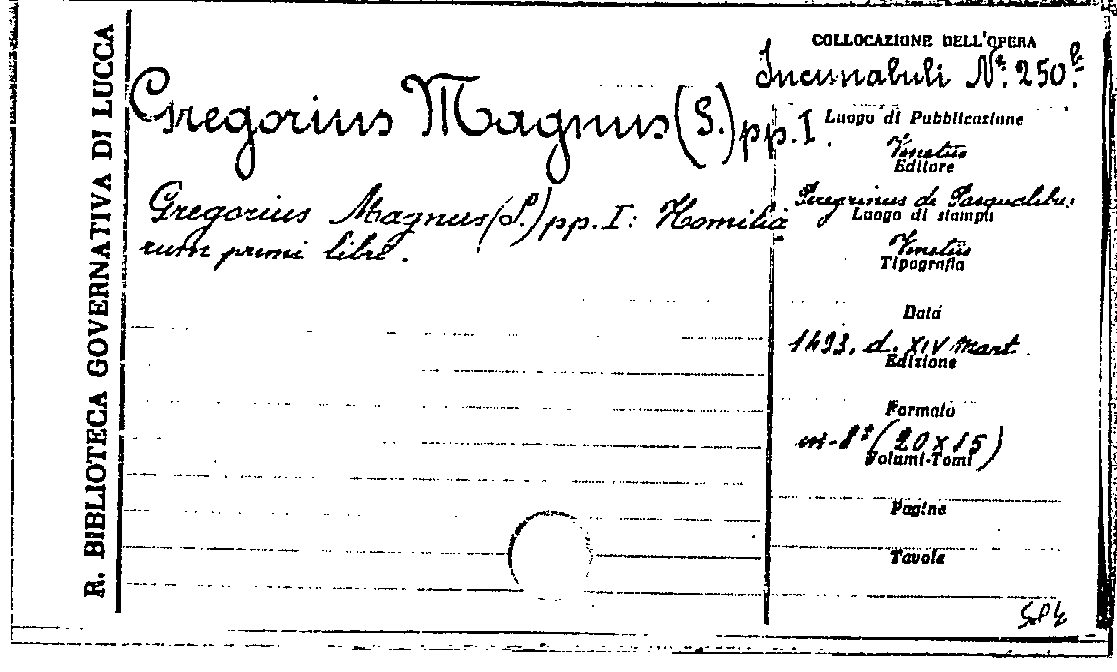 R. BIBLIOTECA GOVERNATIVA DI LUCCA
Gregorius Magnus (S.) pp. I.
Gregorius Magnus (S.) pp. I: Homilia
rum primi libri.
COLLOCAZIONE DELL'OPERA
Incunabuli N.º 250.b
Luogo di Pubblicazione
Venetiis
Editore
Peregrinus de Pasqualibus
Luogo di stampa
Venetiis
Tipografia
Data
1493. d. XIV Mart.
Edizione
Formato
in-8º (20 x 15)
Volumi-Tomi
Pagine
Tavole